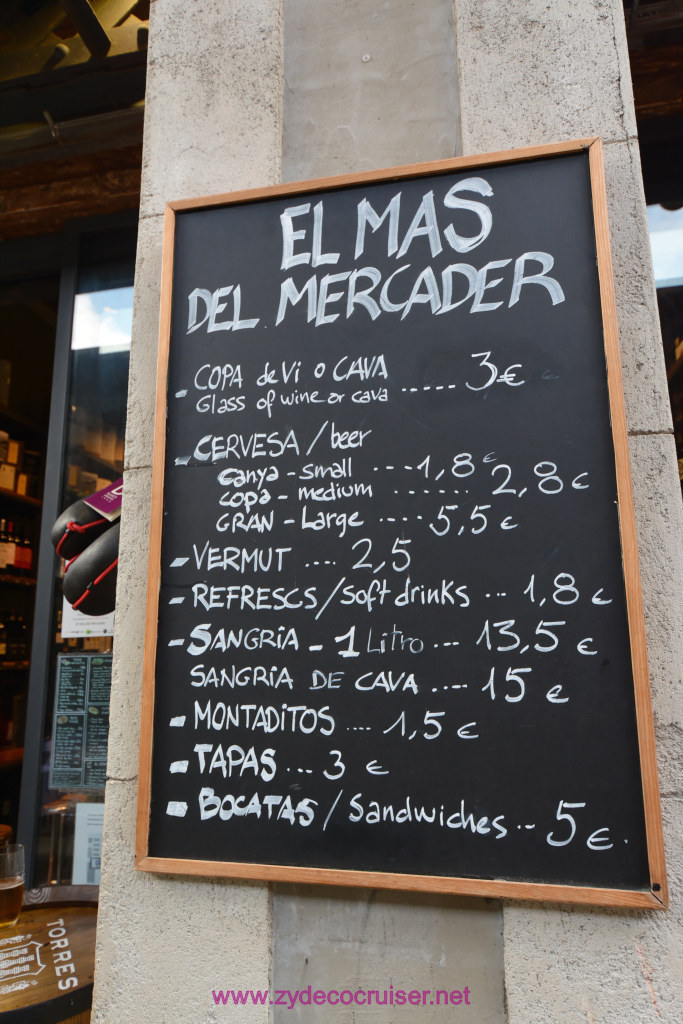 EL MAS
DEL MERCADER
- COPA de Vi o CAVA ..... 3 €
Glass of wine or cava
- CERVESA / beer
canya - small ... 1,8 €
copa - medium ....... 2,8 €
GRAN - Large .... 5,5 €
- VERMUT .... 2,5
- REFRESCS / soft drinks ... 1,8 €
- SANGRIA - 1 Litro ... 13,5 €
SANGRIA DE CAVA .... 15 €
- MONTADITOS .... 1,5 €
- TAPAS ... 3 €
- BOCATAS / Sandwiches .. 5 €.
TORRES
www.zydecocruiser.net